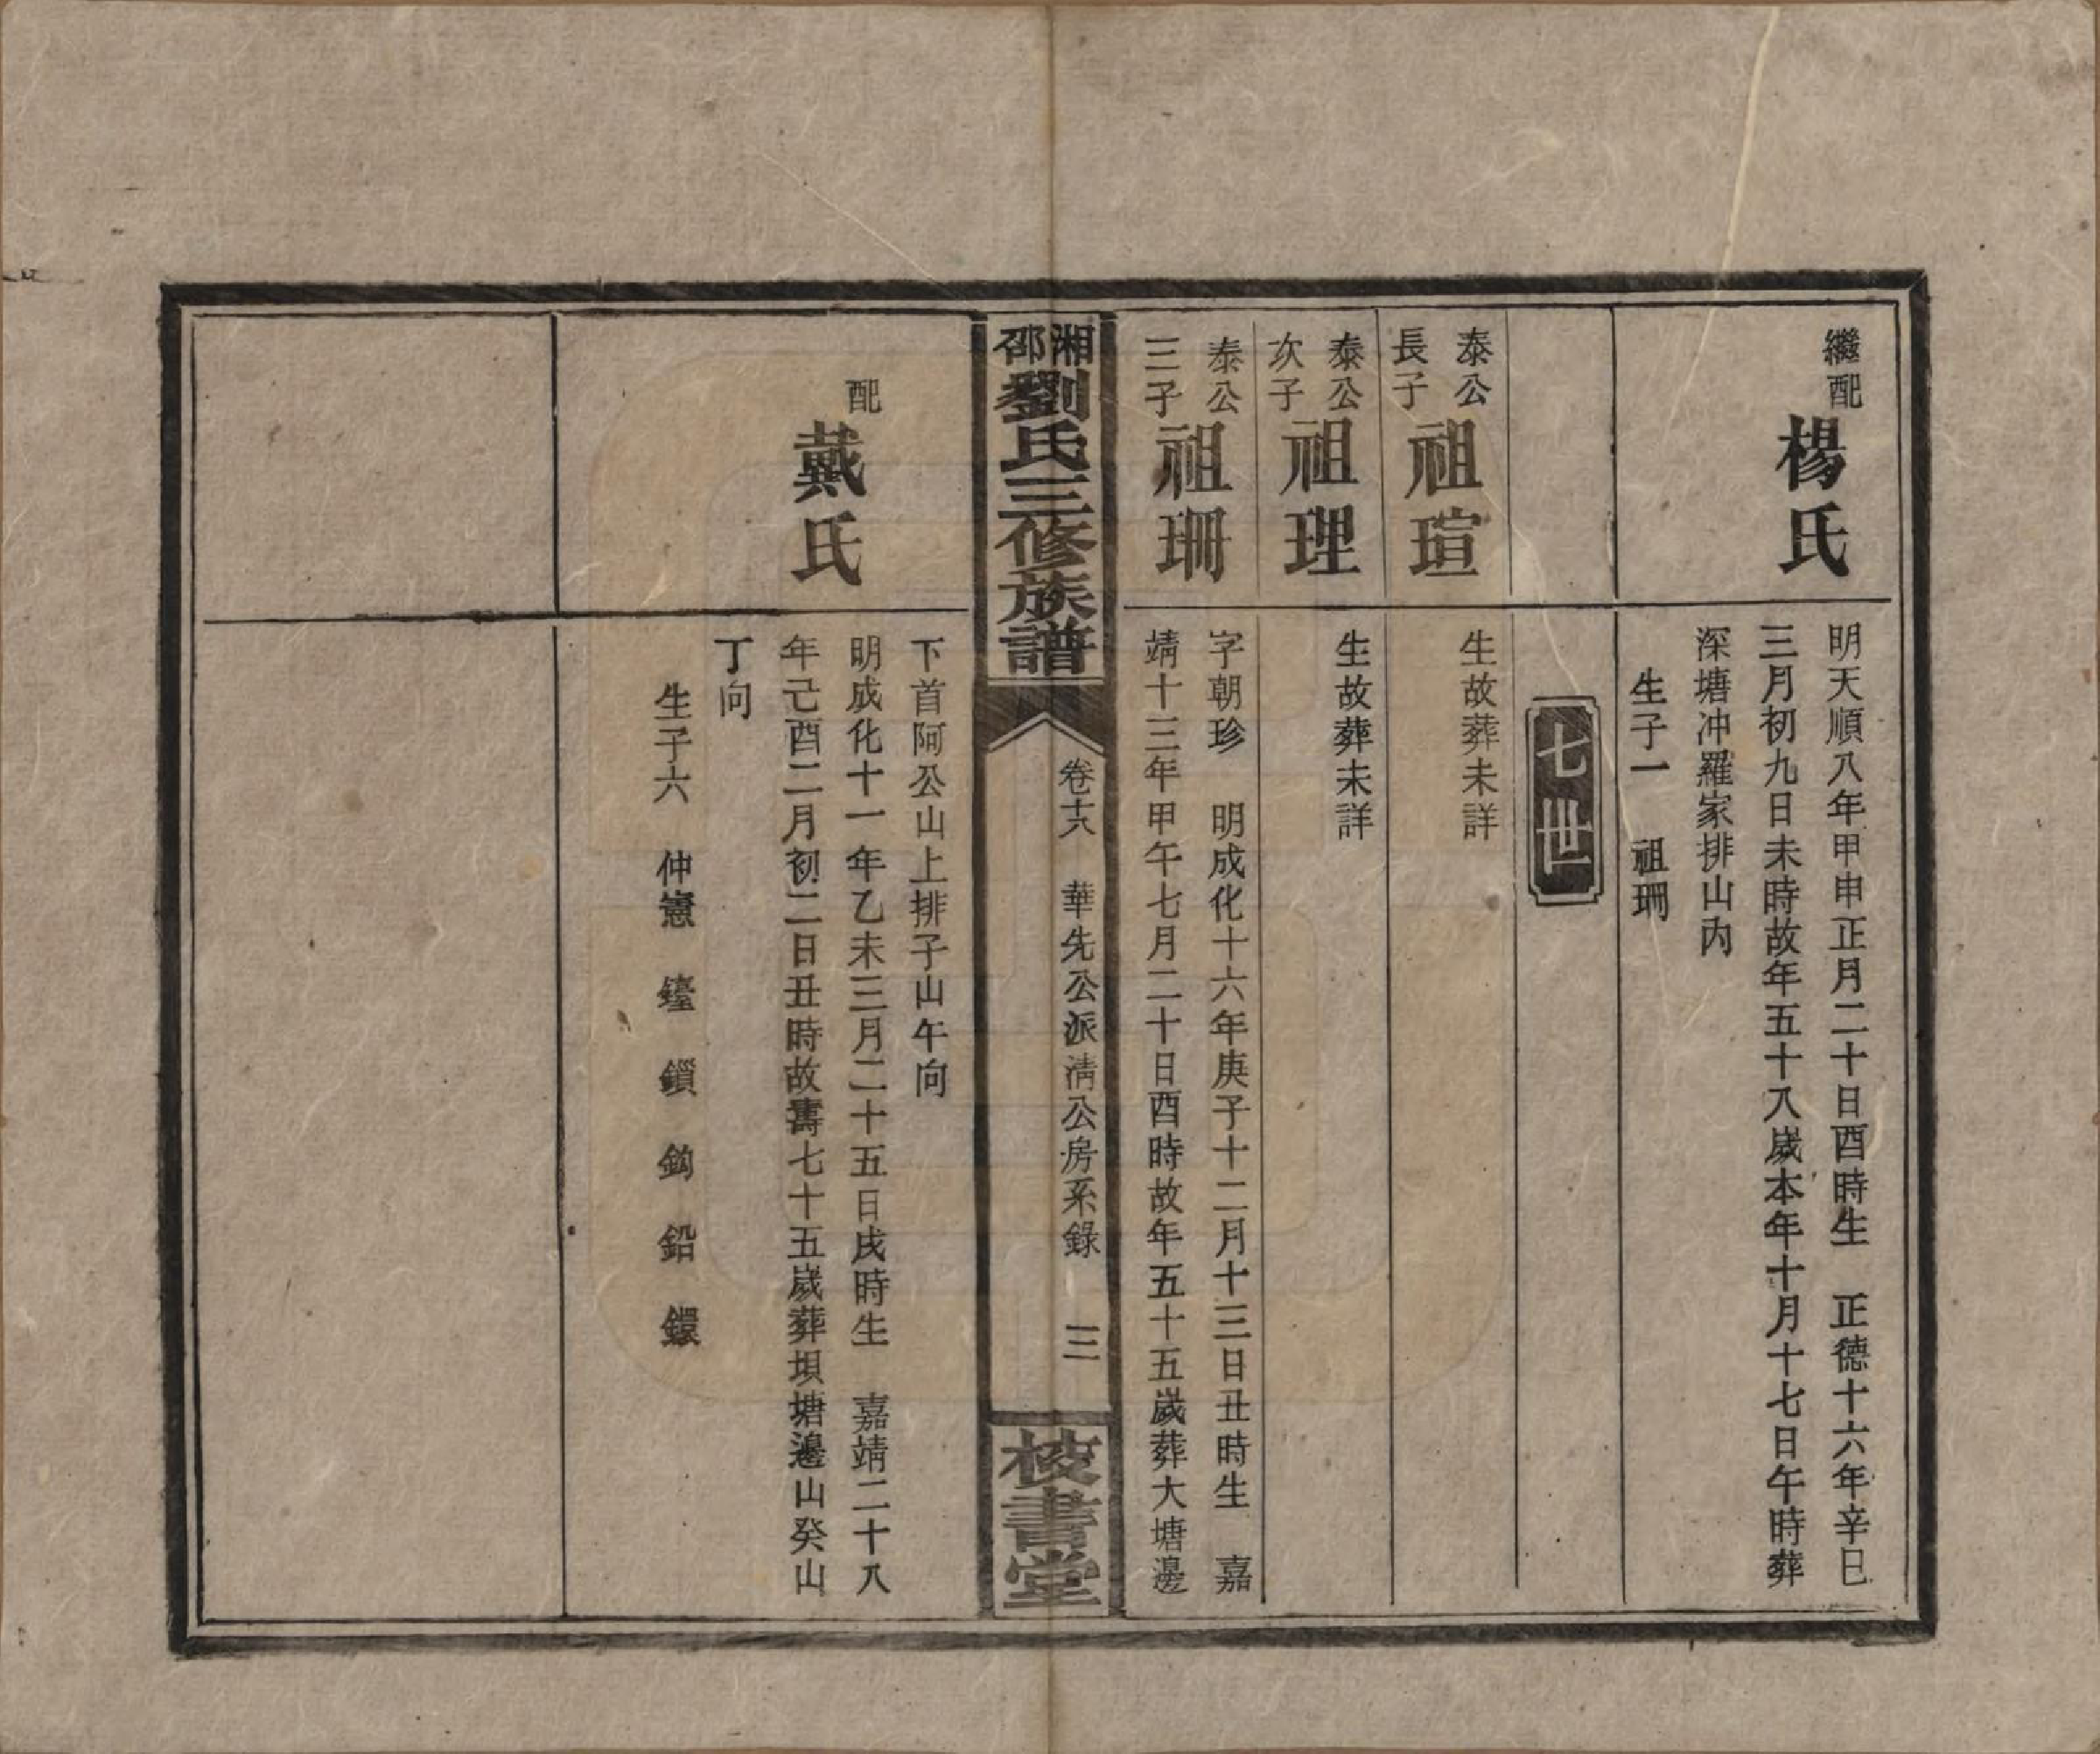 繼配
楊氏
明天順八年甲申正月二十日酉時生　正德十六年辛巳
三月初九日未時故年五十八歲本年十月十七日午時葬
深塘冲羅家排山內
生子一　祖珊
七世
泰公
長子
祖瑄
生故葬未詳
泰公
次子
祖理
生故葬未詳
泰公
三子
祖珊
字朝珍　明成化十六年庚子十二月十三日丑時生　嘉
靖十三年甲午七月二十日酉時故年五十五歲葬大塘邊
湘邵劉氏三修族譜
卷十六　華先公派淸公房系錄　三
校書堂
下首阿公山上排子山午向
配
戴氏
明成化十一年乙未三月二十五日戌時生　嘉靖二十八
年己酉二月初二日丑時故壽七十五歲葬垻塘邊山癸山
丁向
生子六　仲憲　鎖　鈎　鉛　鐶